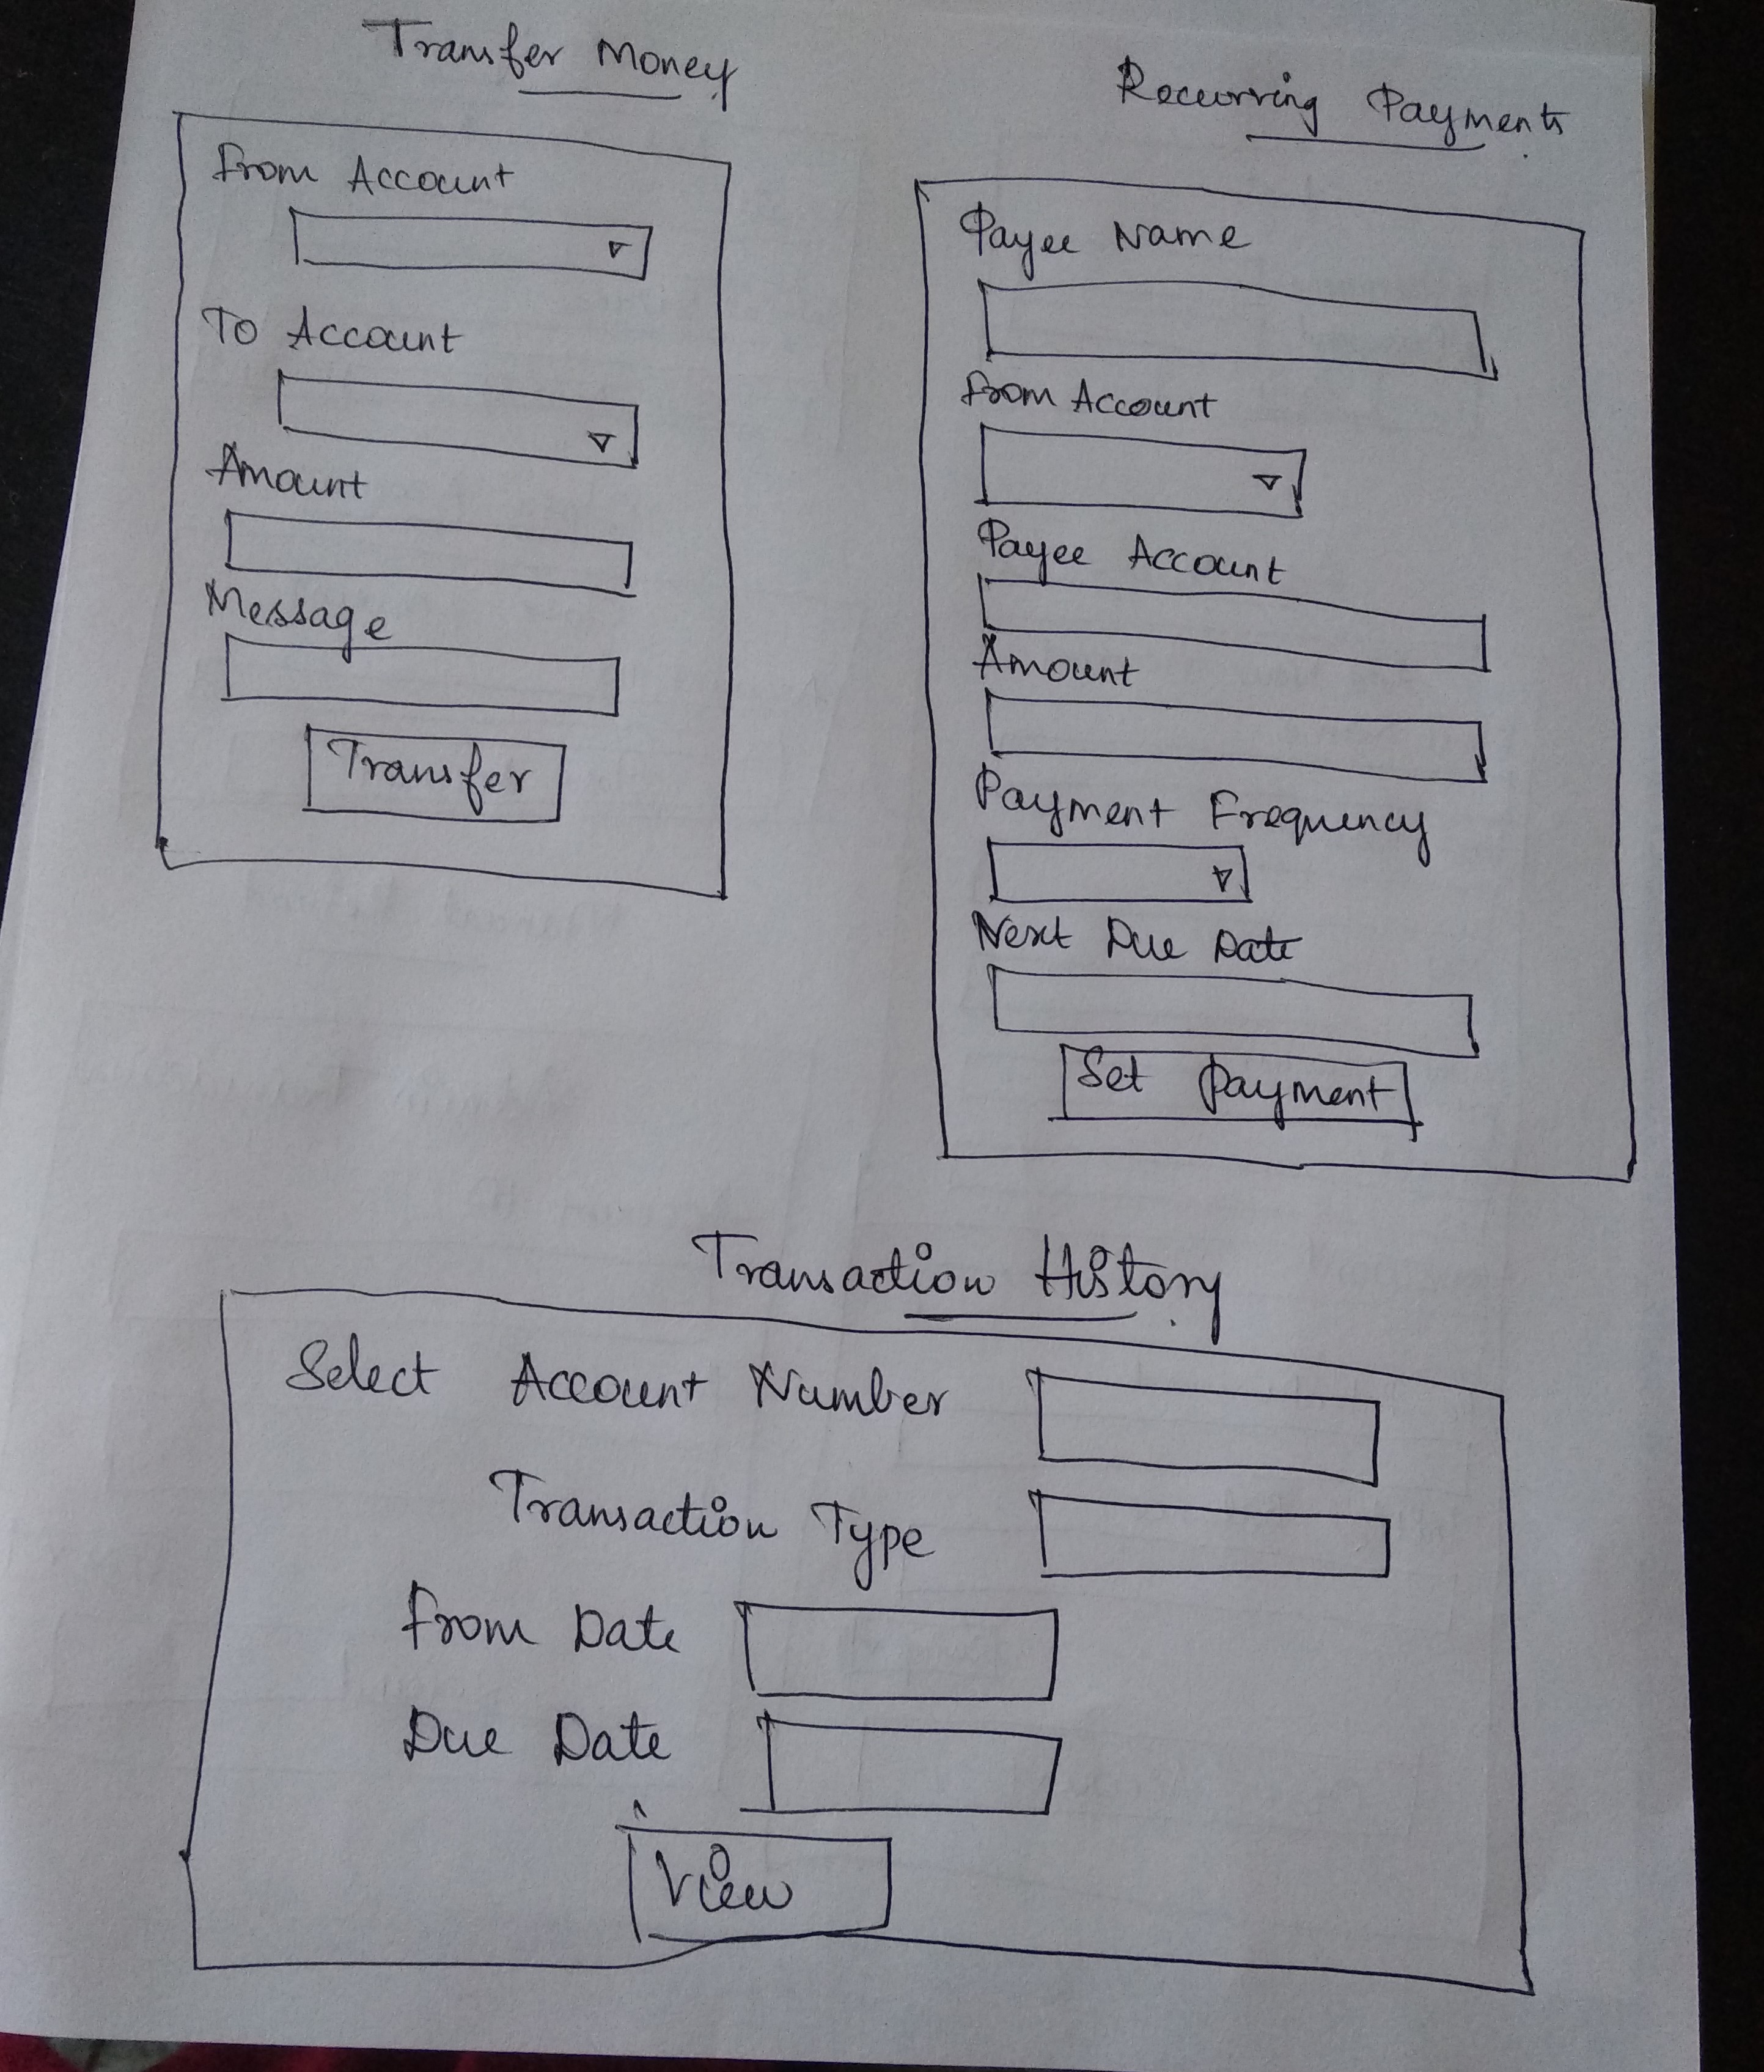 Transfer Money
From Account
To Account
Amount
Message
Transfer
Recurring Payments
Payee Name
From Account
Payee Account
Amount
Payment Frequency
Next Due Date
Set Payment
Transaction History
Select Account Number
Transaction Type
From Date
Due Date
View